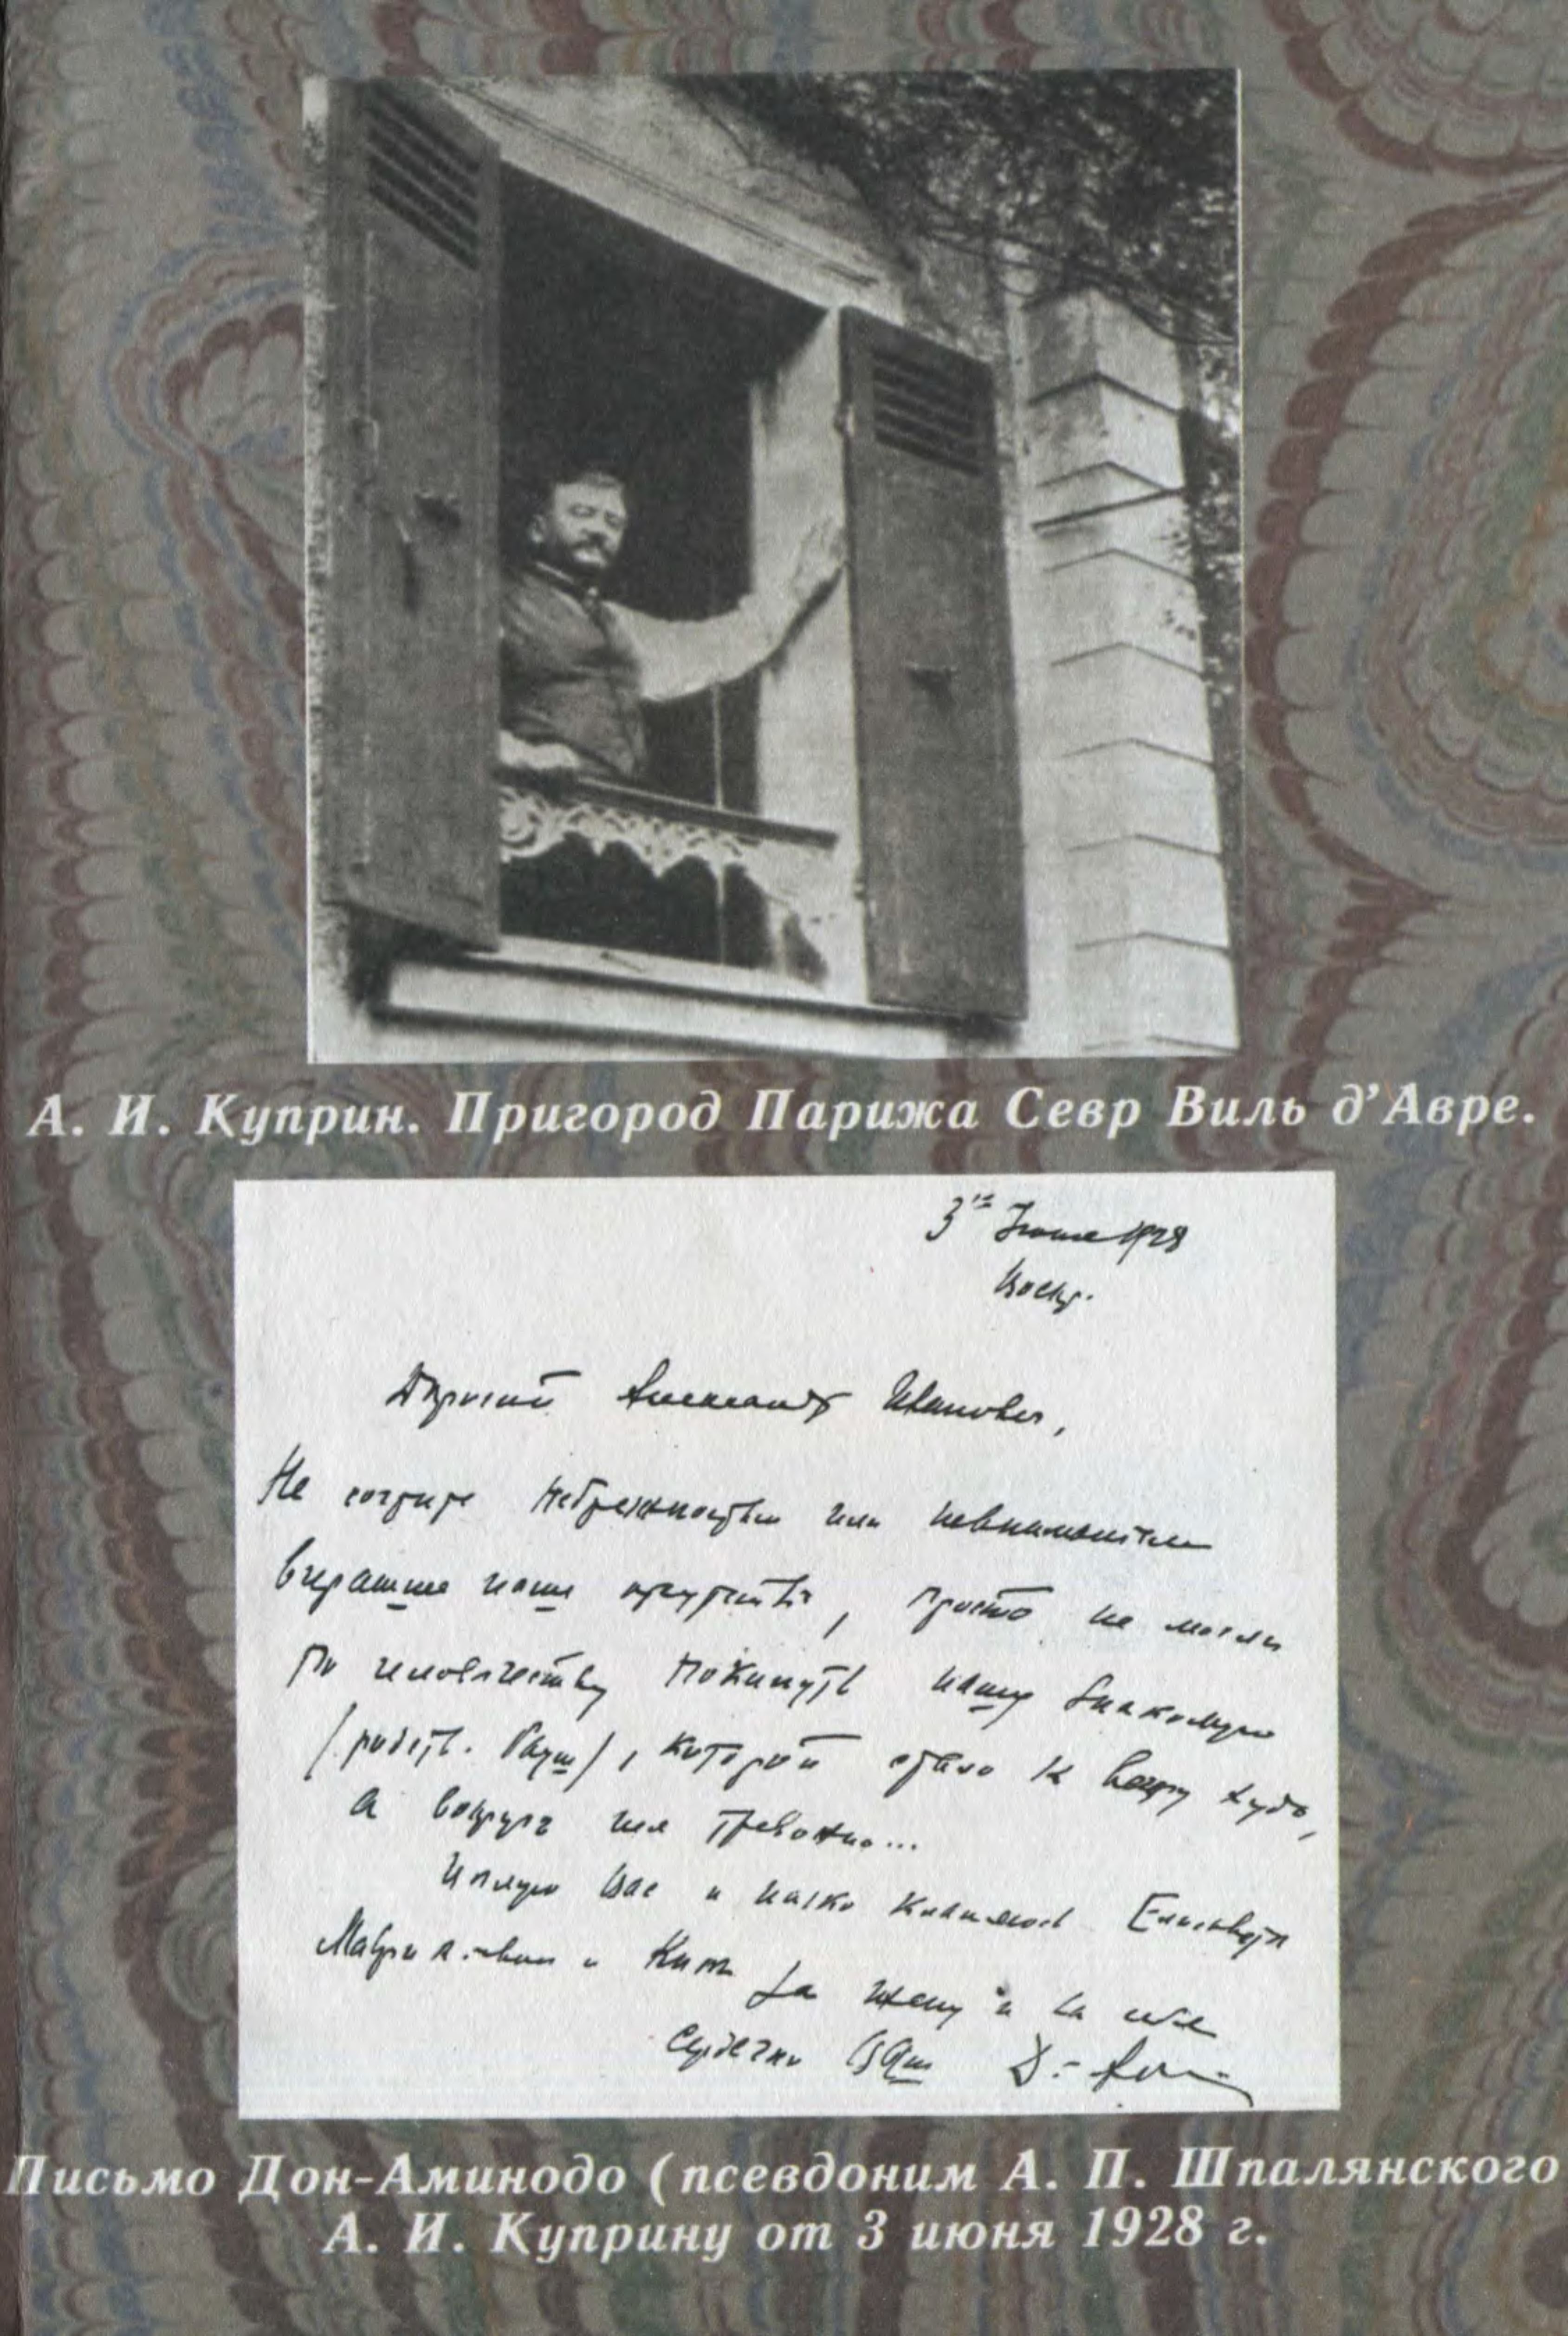 А. И. Куприн. Пригород Парижа Севр Виль д’Авре.
3го Июня 1928
Воскр.
Дорогой Александр Иванович,
Не сочтите небрежностью или невниманием
вчерашнее наше отсутствие, просто не могли
по человечеству покинуть нашу знакомую
которой стало к вечеру худо,
а вокруг нея тревожно...
Целую Вас и низко кланяюсь Елизавете
Маврикиевне и Кисе за жену и за себя
Сердечно Ваш
Письмо Дон-Аминодо (псевдоним А. П. Шпалянского
А. И. Куприну от 3 июня 1928 г.